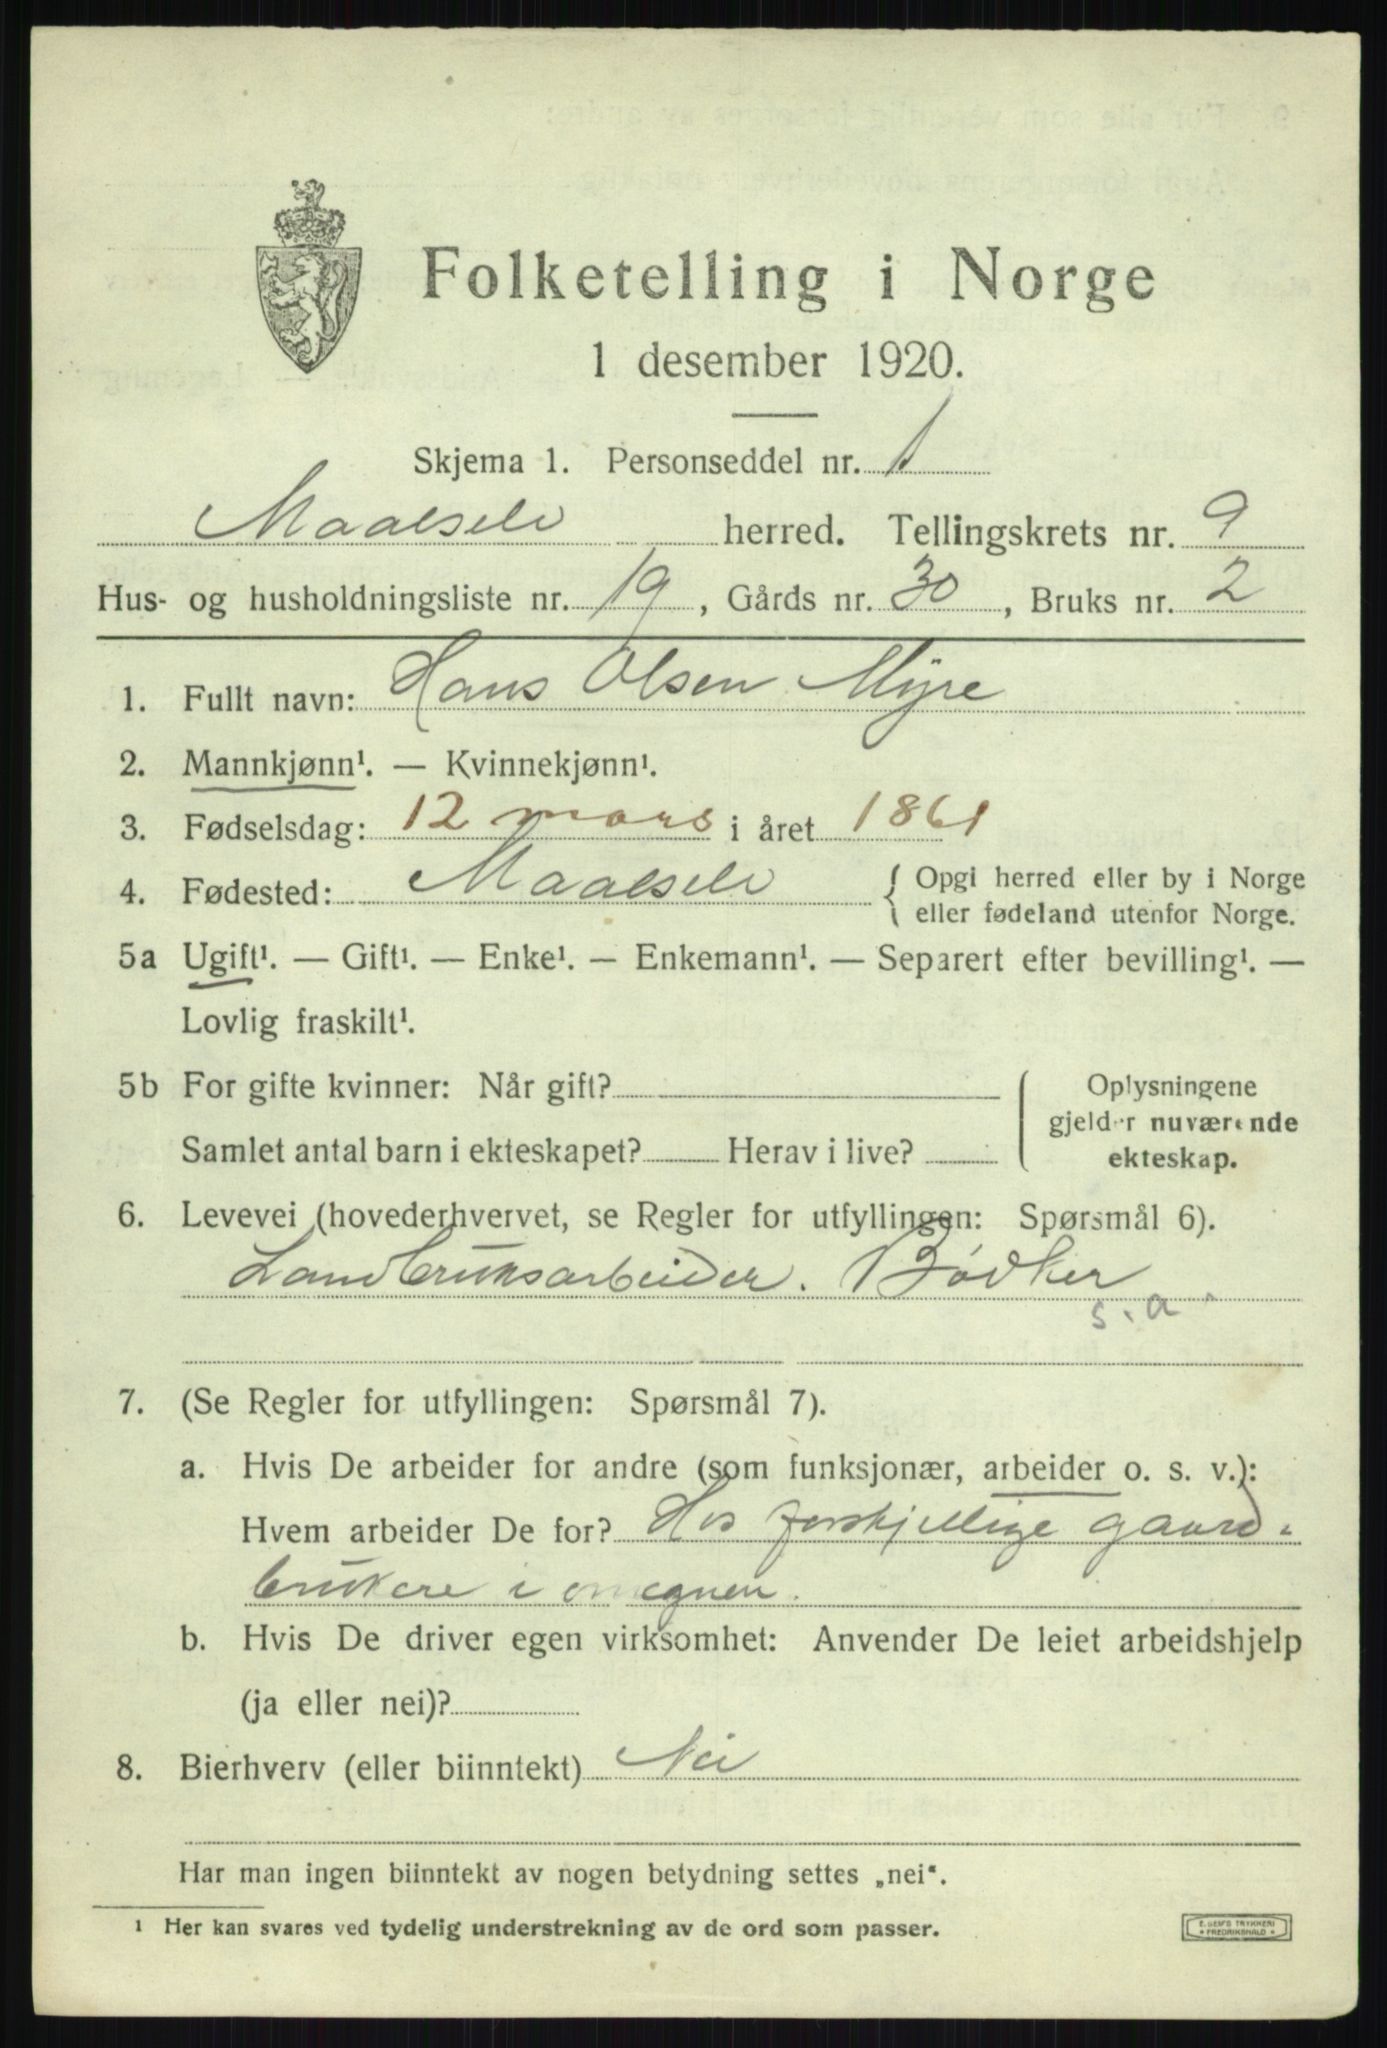 Folketelling i Norge
1 desember 1920.
Skjema 1. Personseddel nr. 1
Maalselv herred. Tellingskrets nr. 9
Hus- og husholdningsliste nr. 19, Gårds nr. 30, Bruks nr. 2
1. Fullt navn: Hans Olsen Myre
2. Mannkjønn¹. — Kvinnekjønn¹.
3. Fødselsdag: 12 mars i året 1861
4. Fødested: Maalselv { Opgi herred eller by i Norge
eller fødeland utenfor Norge.
5a Ugift¹. — Gift¹. — Enke¹. — Enkemann¹. — Separert efter bevilling¹. —
Lovlig fraskilt¹.
5b For gifte kvinner: Når gift?
Samlet antal barn i ekteskapet? Herav i live?
Oplysningene
gjelder nuværende
ekteskap.
6. Levevei (hovederhvervet, se Regler for utfyllingen: Spørsmål 6).
Landbruksarbeider. Bødker
s.a.
7. (Se Regler for utfyllingen: Spørsmål 7).
a. Hvis De arbeider for andre (som funksjonær, arbeider o. s. v.):
Hvem arbeider De for? Hos forskjellige gaard-
brukere i omegnen.
b. Hvis De driver egen virksomhet: Anvender De leiet arbeidshjelp
(ja eller nei)?
8. Bierhverv (eller biinntekt) Nei
Har man ingen biinntekt av nogen betydning settes „nei“.
¹ Her kan svares ved tydelig understrekning av de ord som passer.
E. SEM'S TRYKKERI
* FREDRIKSHALD *